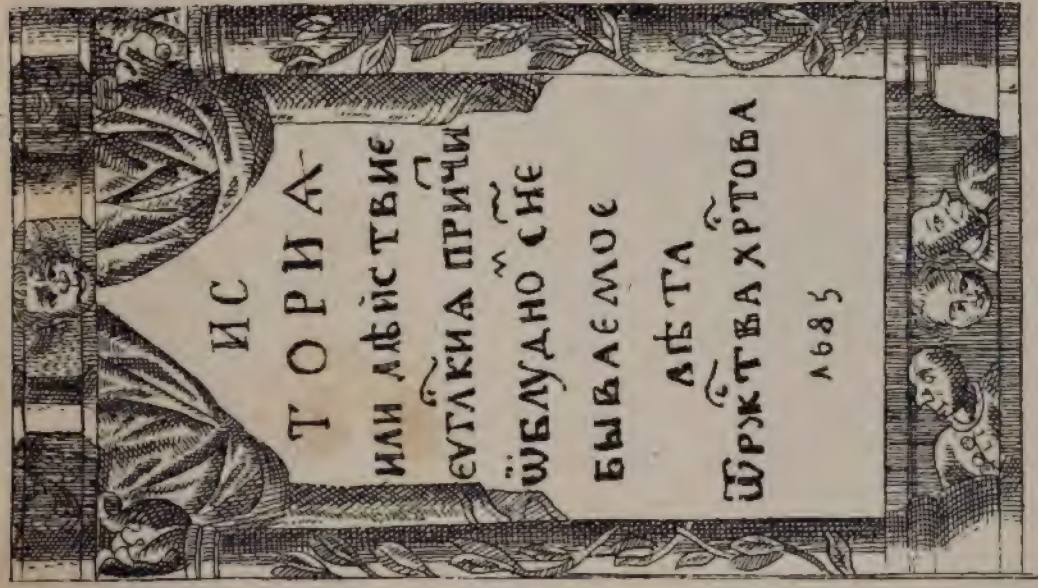 ИС
ТОРИѦ
ИЛИ ДѢЙСТВИЕ
ЕѴГ҃ЛКИѦ ПРИ҃ЧИ
Ѡ БЛУДНО҃ С҃НЕ
БЫВАЕМОЕ
ЛѢТА
Ѿ РЖ҃ТВА ХР҃ТОВА
1685